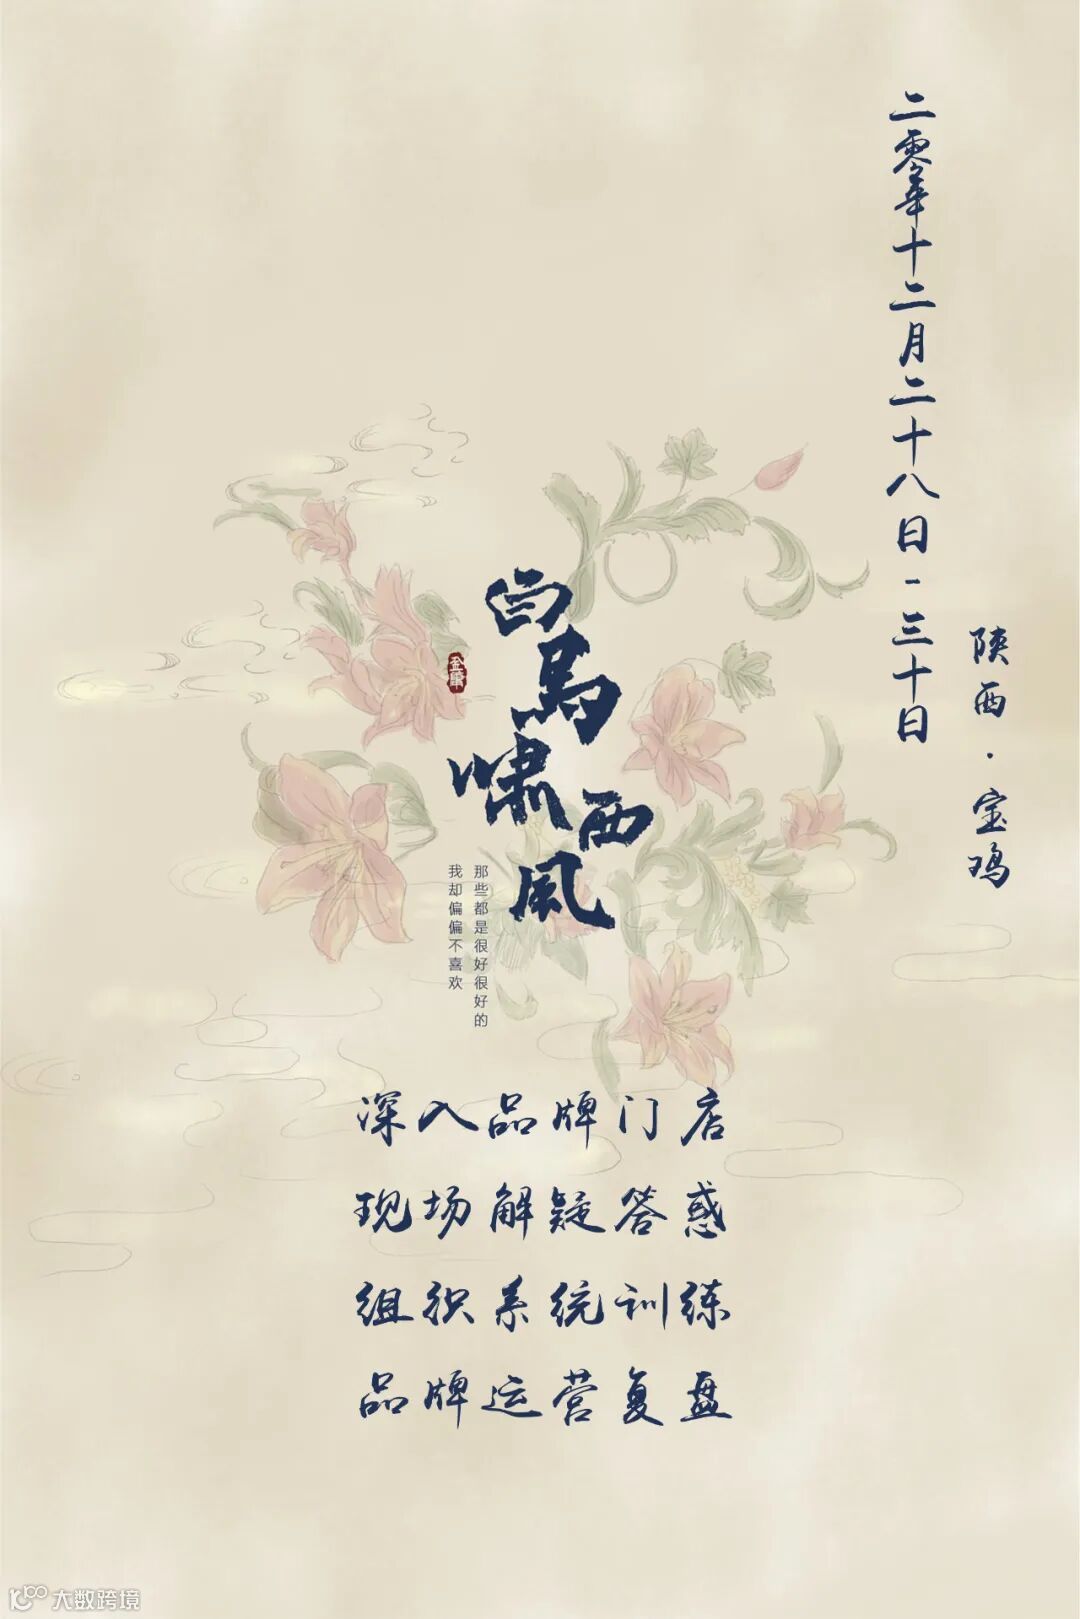 二零年十二月二十八日-三十日
陕西·宝鸡
白马啸西风
金庸
那些都是很好很好的
我却偏偏不喜欢
深入品牌门店
现场解疑答惑
组织系统训练
品牌运营复盘
大数跨境